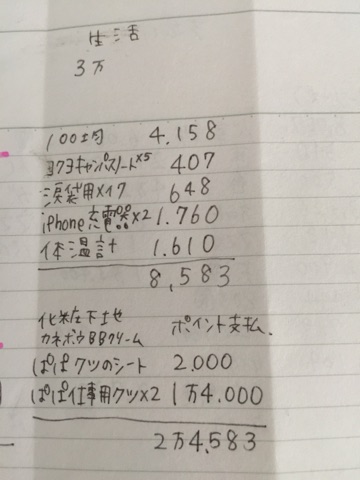 生活
3万
100均 4.158
コクヨキャンパスノート×5 407
涙袋用メイク 648
iphone充電器×2 1.760
体温計 1.610
8,583
化粧下地
カネボウBBクリーム ポイント支払.
ぱぱクツのシート 2.000
ぱぱ仕事用クツ×2 1万4.000
2万4.583